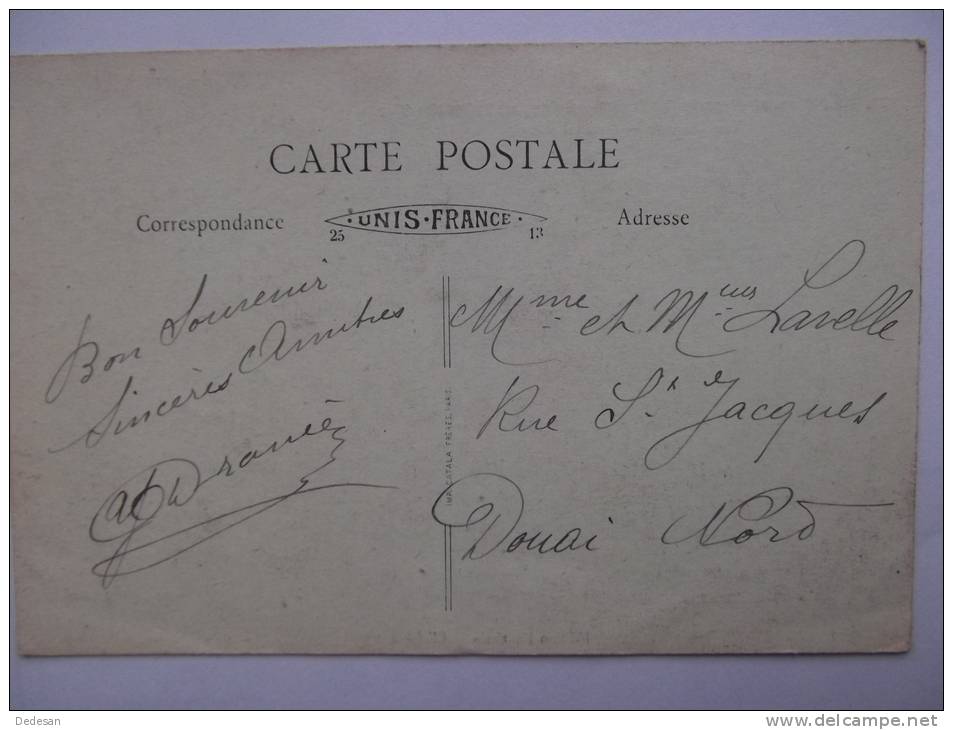 CARTE POSTALE
Correspondance
· UNIS · FRANCE ·
25 13
Adresse
Bon Souvenir
Sincères Amitiés
Mme et Mr Lavelle
Rue St Jacques
Douai Nord
IMP. CATALA FRÈRES, PARIS
Dedesan
www.delcampe.net